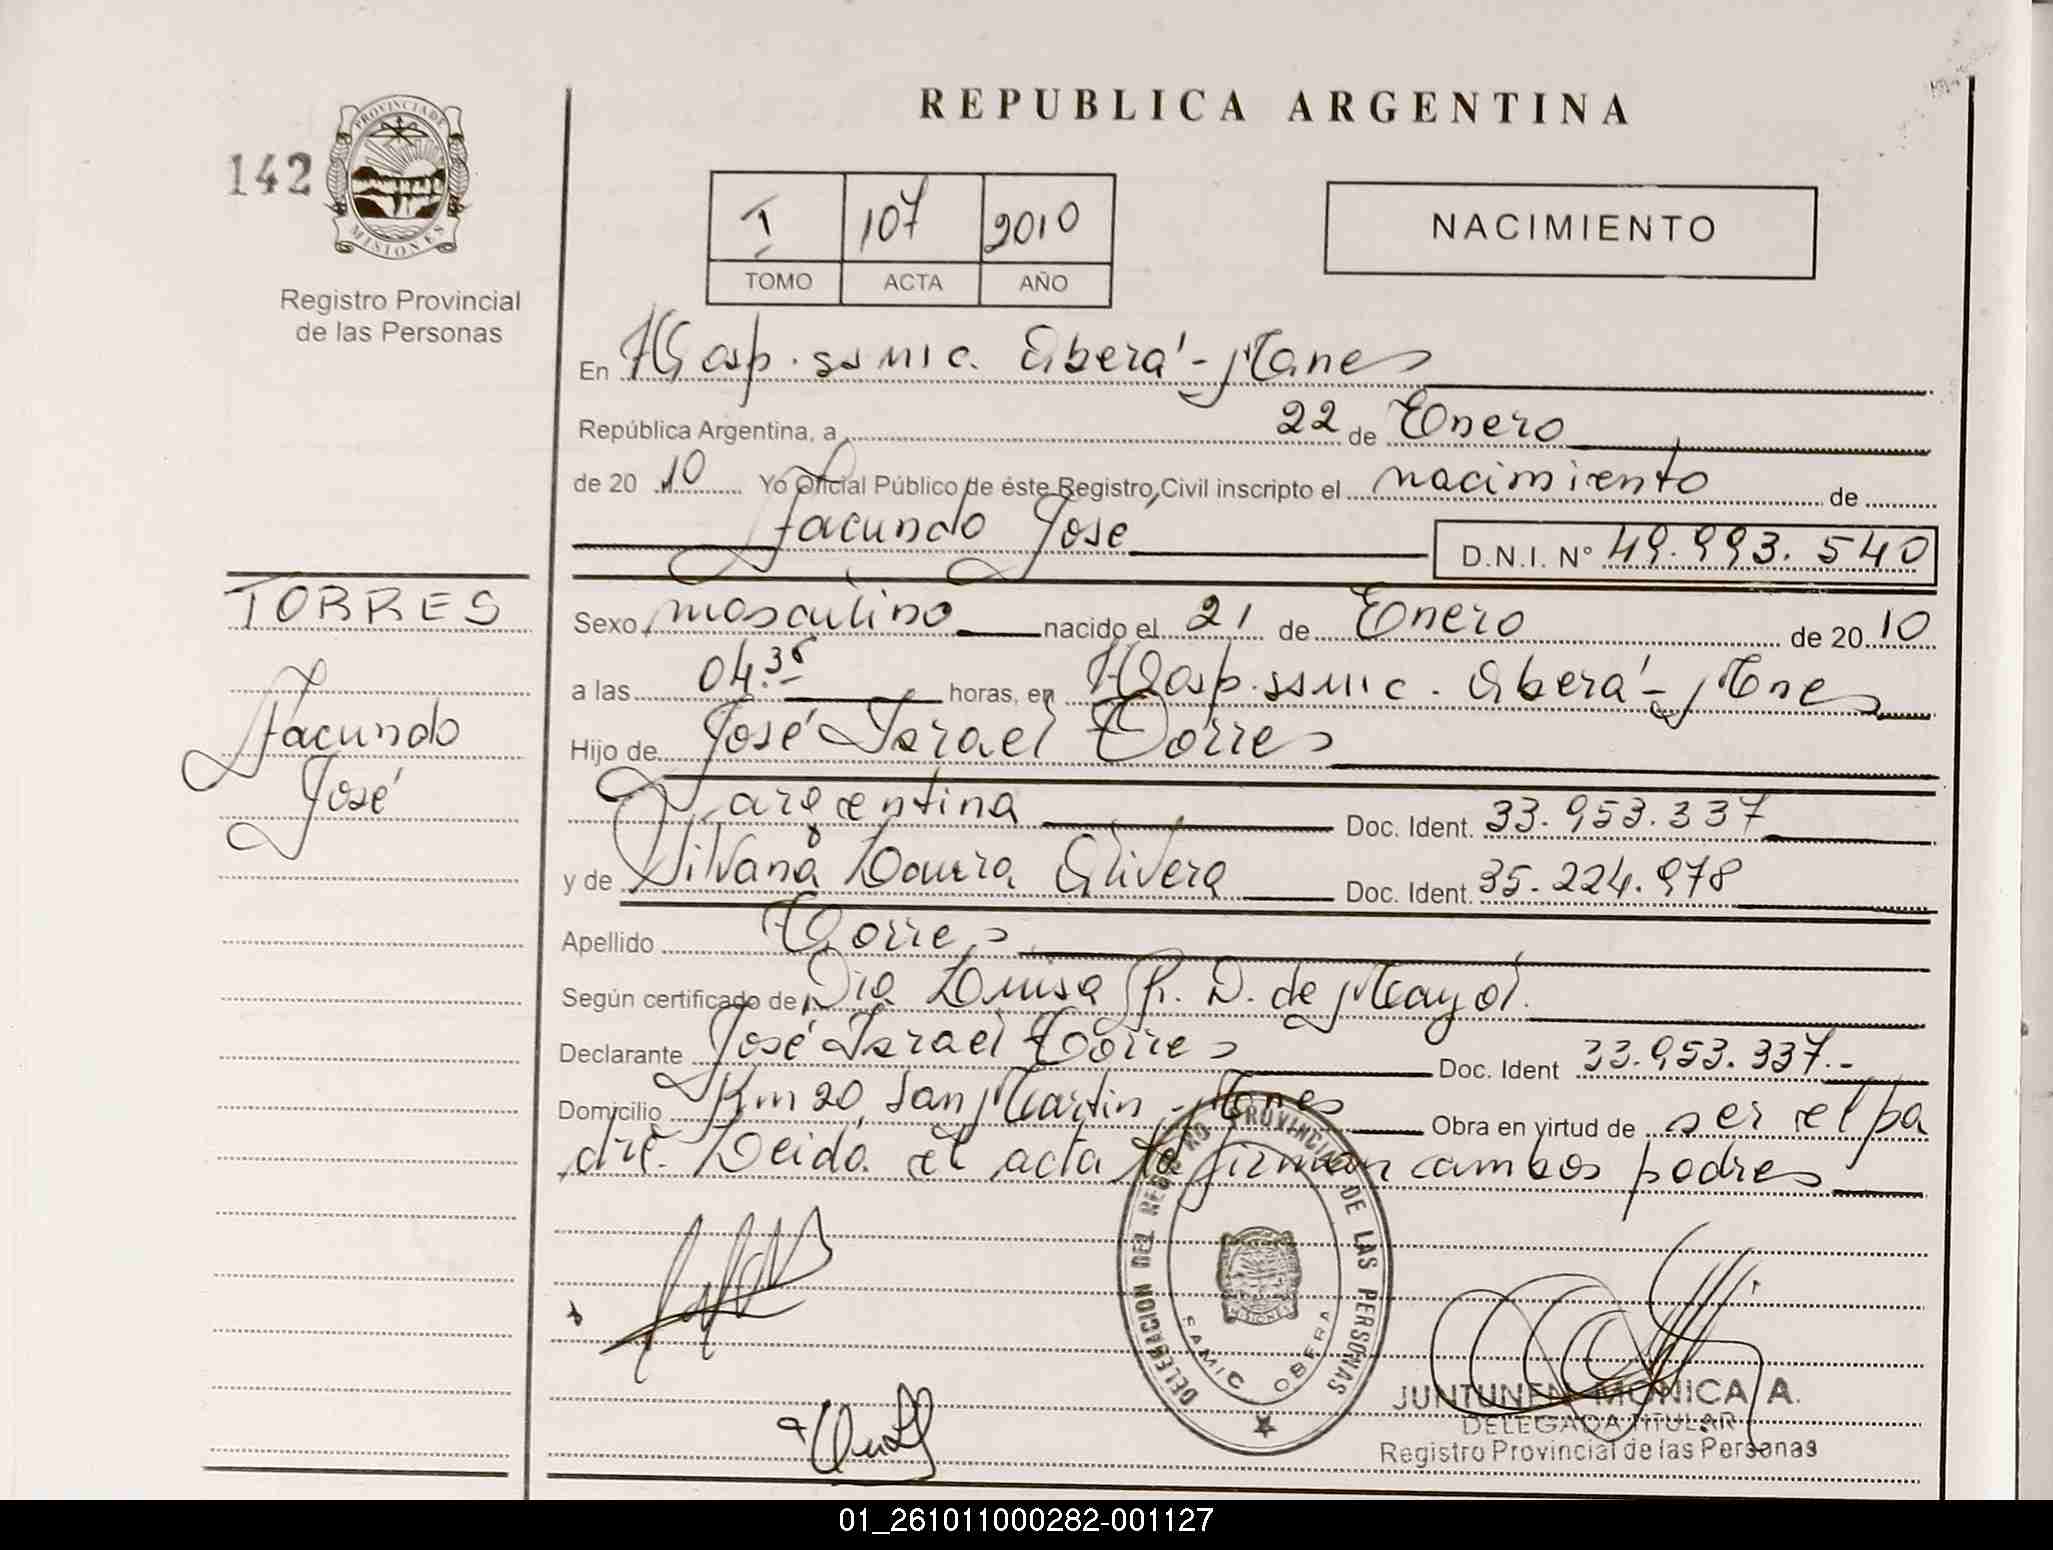 REPUBLICA ARGENTINA
142
PROVINCIA DE
MISIONES
Registro Provincial
de las Personas
I 107 2010
TOMO ACTA AÑO
NACIMIENTO
En Hosp. ssmic. Oberá - Mnes
República Argentina, a 22 de Enero
de 20 10 Yo Oficial Público de éste Registro Civil inscripto el nacimiento de
Facundo José D.N.I. Nº 49.993.540
TORRES
Facundo
José
Sexo masculino nacido el 21 de Enero de 20 10
a las 04.35 horas, en Hosp. ssmic. Oberá - Mnes
Hijo de José Israel Torres
argentina Doc. Ident. 33.953.337
y de Silvana Laura Olivera Doc. Ident. 35.224.978
Apellido Torres
Según certificado de Dra Luisa R. D. de Mayol.
Declarante José Israel Torres Doc. Ident 33.953.337.-
Domicilio Km 20, San Martin - Mnes Obra en virtud de ser el pa
dre. Leida el acta la firman ambos padres
DELEGACION DEL REGISTRO PROVINCIAL DE LAS PERSONAS
MISIONES
SAMIC OBERA
JUNTUNEN MONICA A.
DELEGADA TITULAR
Registro Provincial de las Personas
01_261011000282-001127